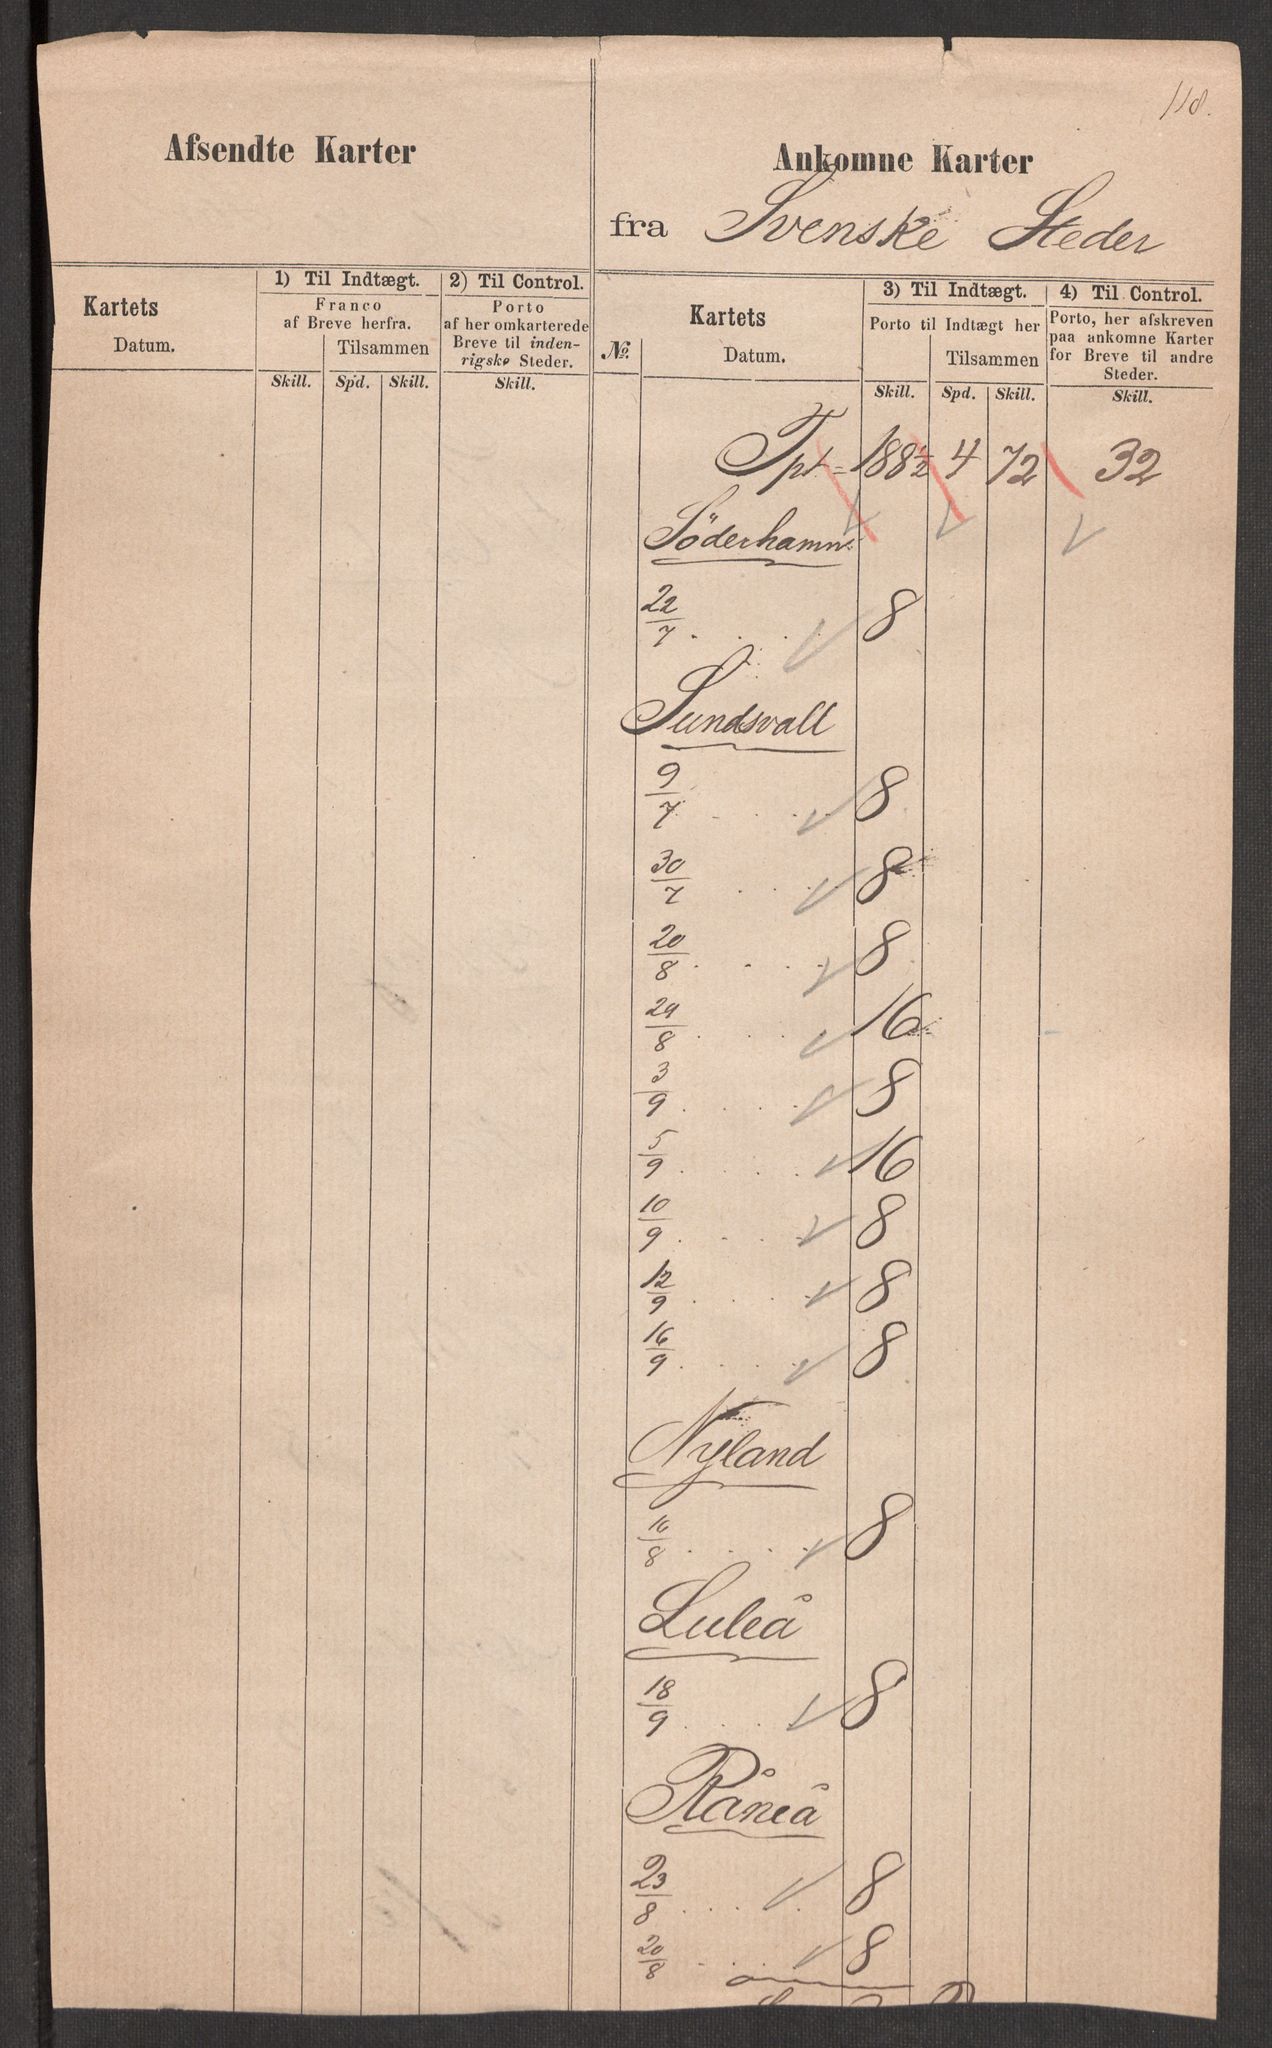 118.
Afsendte Karter
Ankomne Karter
fra Svenske Steder
Kartets
Datum.
1) Til Indtægt.
Franco
af Breve herfra.
Tilsammen
Skill. Spd. Skill.
2) Til Control.
Porto
af her omkarterede
Breve til inden-
rigske Steder.
Skill.
No.
Kartets
Datum.
3) Til Indtægt.
Porto til Indtægt her
Tilsammen
Skill. Spd. Skill.
4) Til Control.
Porto, her afskreven
paa ankomne Karter
for Breve til andre
Steder.
Skill.
Tpt = 188½ 4 72 32
Söderhamn.
22/7 8
Sundsvall
9/7 8
30/7 8
20/8 8
29/8 16
3/9 8
5/9 16
10/9 8
12/9 8
16/9 8
Nyland
16/8 8
Luleå
18/9 8
Råneå
23/8 8
20/8 8